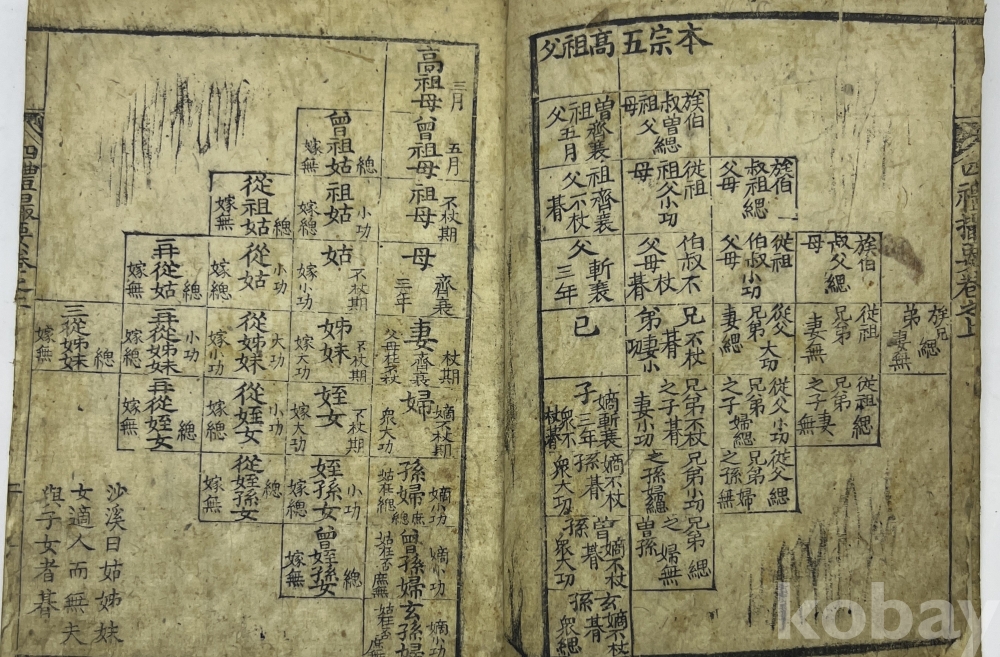 本宗五高祖父
族伯
叔曾緦
祖父
母
曾齊衰
祖五月
父
族伯
叔祖緦
父母
從祖
祖父小功
母
祖齊衰
父不杖
朞
族伯
叔父緦
母
從祖
伯叔小功
父母
伯叔不
父母杖
朞
父斬衰
三年
族兄
弟緦
妻無
從祖
兄弟
妻無
從父大功
兄弟
妻緦
兄不杖
弟朞
妻小
功
己
從祖
兄弟緦
之子妻
無
從父小功
兄弟
之子婦緦
兄弟不杖
之子朞
妻小功
子
嫡斬衰
三年
衆不
杖朞
從父緦
兄弟
之孫婦
無
兄弟小功
之孫
嫡不杖
孫朞
衆大功
兄弟緦
之婦無
曾孫
曾嫡不杖
孫朞
衆大功
玄嫡不杖
孫朞
衆緦
四禮撮要卷之上
高祖母
三月
曾祖母
五月
祖母
不杖期
母
齊衰
三年
妻
杖期
齊衰
婦
嫡不杖期
衆大功
孫婦
嫡小功
曾孫婦
嫡小功
玄孫婦
嫡小功
曾祖姑
緦
嫁無
祖姑
小功
嫁緦
姑
不杖期
嫁小功
姊妹
不杖期
嫁大功
姪女
不杖期
嫁大功
姪孫女
小功
嫁緦
曾姪孫女
緦
嫁無
從祖姑
緦
嫁無
從姑
小功
嫁緦
從姊妹
大功
嫁小功
從姪女
小功
嫁緦
從姪孫女
緦
嫁無
再從姑
緦
嫁無
再從姊妹
小功
嫁緦
再從姪女
緦
嫁無
三從姊妹
緦
嫁無
沙溪曰姑姊妹
女適人而無夫
與子女者朞
kobay